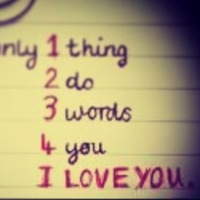 only 1 thing
2 do
3 words
4 you
I LOVE YOU.